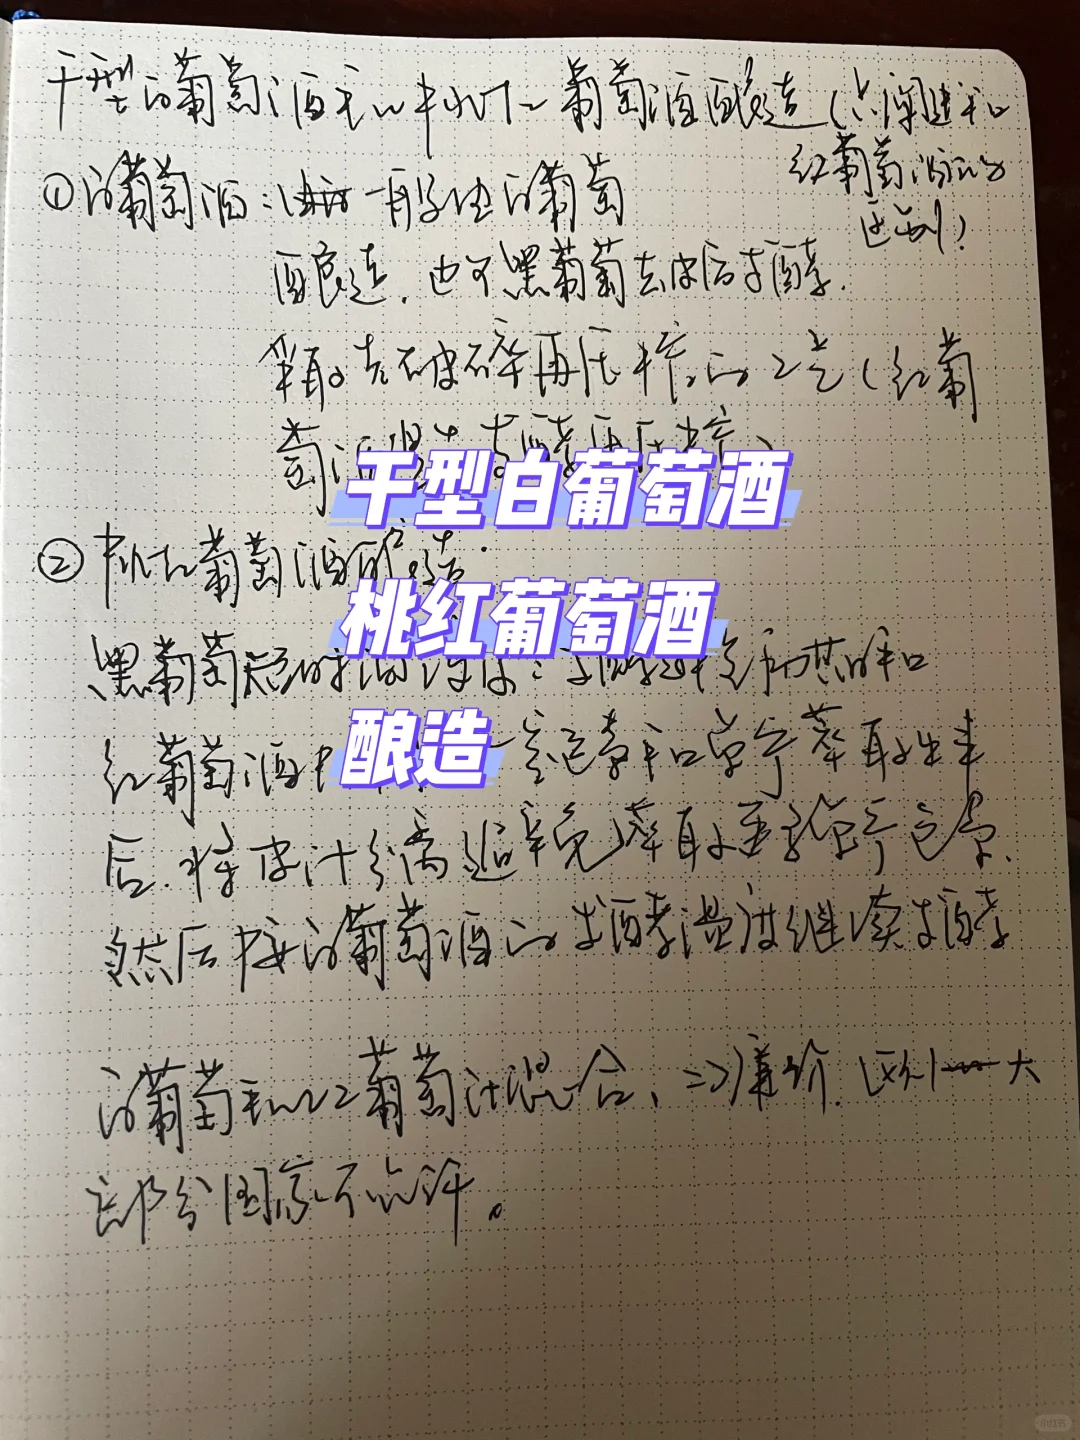 干型白葡萄酒和桃红葡萄酒酿造(只阐述和
红葡萄酒的
区别)
①白葡萄酒:一般使白葡萄
酿造.也可黑葡萄去皮后发酵.
采取先破碎再压榨的工艺(红葡
萄酒是先发酵再压榨)
干型白葡萄酒
②桃红葡萄酒酿造.
桃红葡萄酒
黑葡萄短时间浸渍:
和
酿造
红葡萄酒
色素和单宁萃取出来
后.将皮汁分离避免萃取更多单宁色素.
然后按白葡萄酒的发酵温度继续发酵
白葡萄和红葡萄汁混合.⇒廉价.
大
部分国家不允许。
小红书